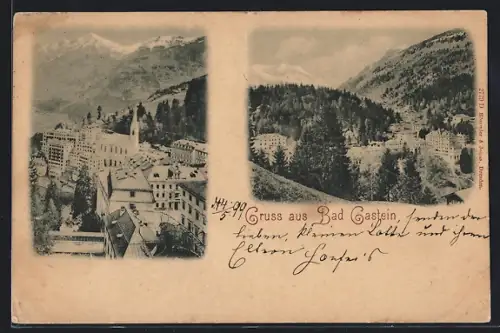 14/5 99. Gruss aus Bad Gastein, senden der
lieben, kleinen Lotte und ihren
Eltern
2729 D Römmler & Jonas, Dresden.